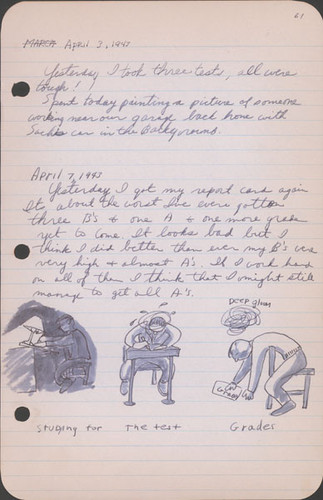 61
MARCH April 3, 1943
Yesterday I took three tests, all were
tough!
Spent today painting a picture of someone
working near our garage back home with
Sach's car in the background.
April 7, 1943
Yesterday I got my report card again
It's about the worst I've ever gotten
three B's & one A & one more grade
yet to come. It looks bad but I
think I did better than ever my B's were
very high & almost A's. If I work hard
on all of them I think that I might still
manage to get all A's.
Deep gloom
Studying for The test Grades